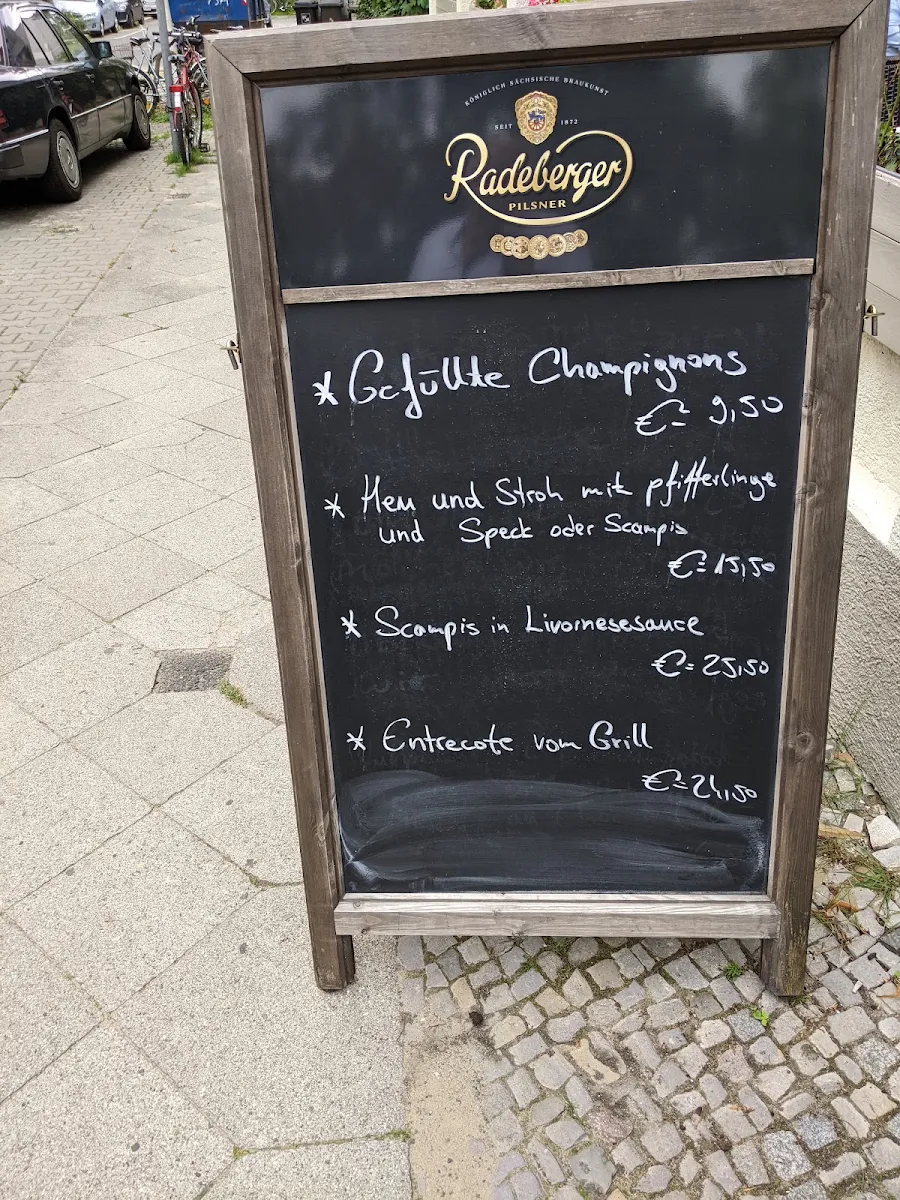 KÖNIGLICH SÄCHSISCHE BRAUKUNST
SEIT 1872
Radeberger
PILSNER
* Gefüllte Champignons
€= 9,50
* Heu und Stroh mit pfifferlinge
und Speck oder Scampis
€= 15,50
* Scampis in Livornesesauce
€= 25,50
* Entrecote vom Grill
€= 24,50